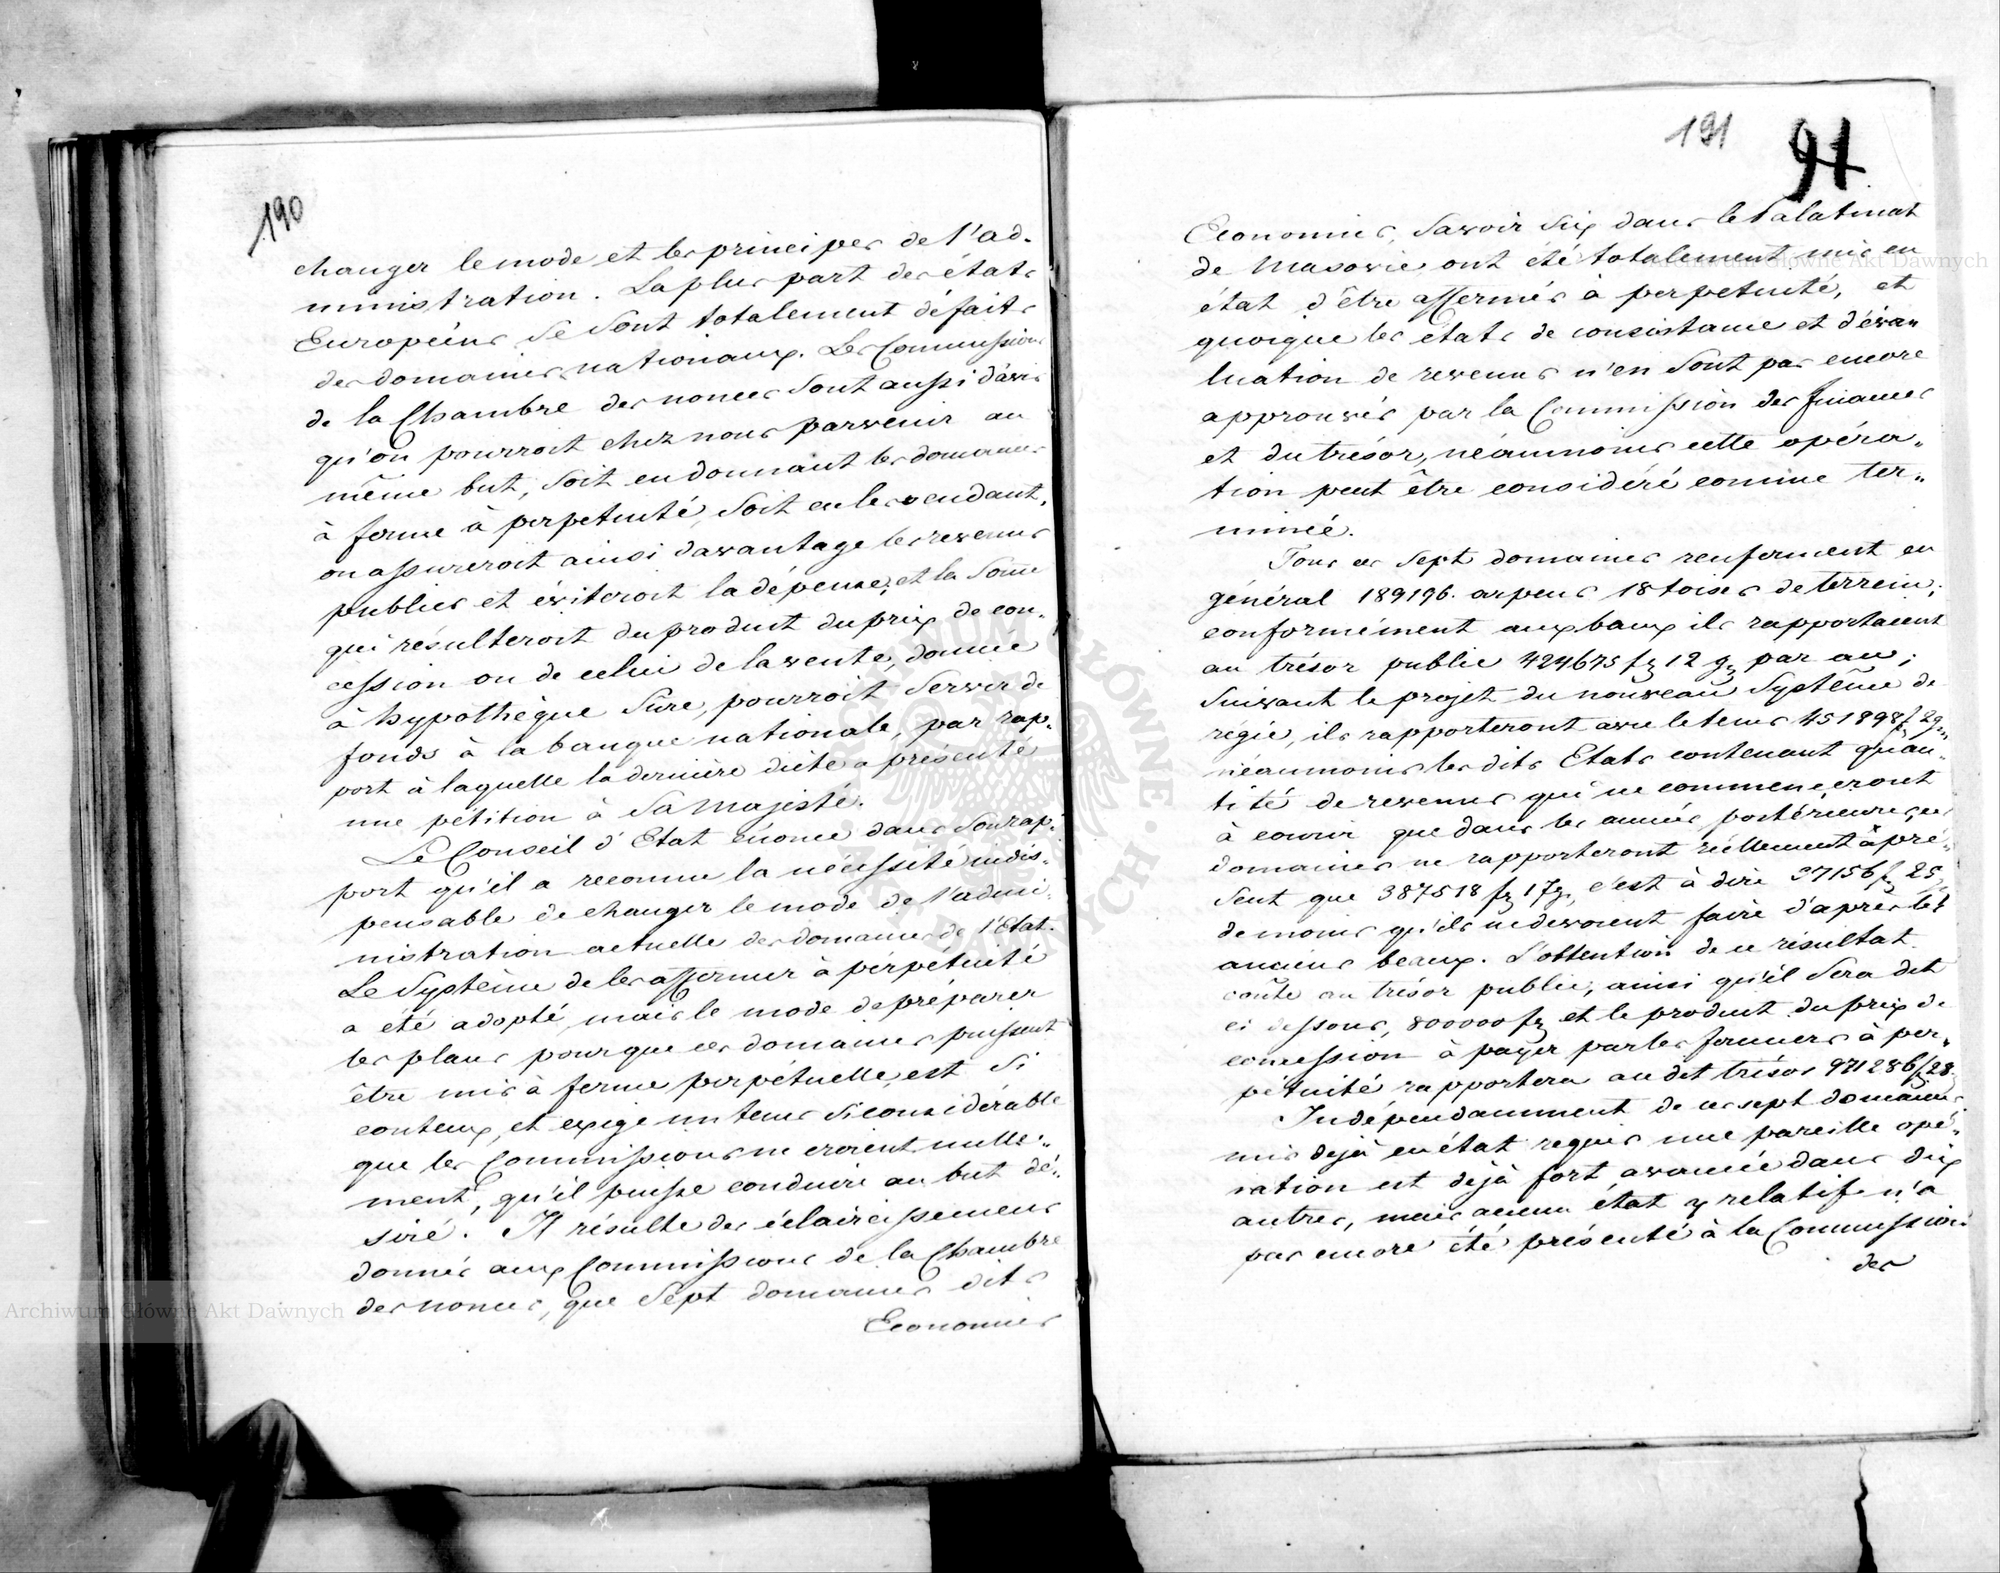 190
changer le mode et les principes de l'ad-
ministration. La plus part des états
Européens se sont totalement défaits
des domaines nationaux. Les Commissions
de la Chambre des nonces sont aussi d'avis
qu'on pourroit chez nous parvenir au
même but, soit en donnant les domaines
à ferme à perpetuité, soit en les vendant,
on assureroit ainsi davantage les revenus
publics et éviteroit la dépense, et la somme
qui résulteroit du produit du prix de con-
cession ou de celui de la vente, donnée
à hypothèque sûre, pourroit servir de
fonds à la banque nationale, par rap-
port à laquelle la dernière diète a présenté
une pétition à Sa Majesté.
Le Conseil d'Etat énonce dans son rap-
port qu'il a reconnu la nécessité indis-
pensable de changer le mode de l'admi-
nistration actuelle des domaines de l'Etat.
Le Systême de les affermer à perpétuité
a été adopté, mais le mode de préparer
les plans pour que ces domaines puissent
être mis à ferme perpétuelle, est si
couteux, et exige un tems si considérable
que les Commissions ne croient nulle-
ment, qu'il puisse conduire au but dé-
siré. Il résulte des éclaircissemens
donnés aux Commissions de la Chambre
des nonces, que Sept domaines dits
Economies
191 91
Economies, Savoir six dans le Palatinat
de Masovie ont été totalement mis en
état d'être affermés à perpetuité, et
quoique les états de consistance et d'éva-
luation de revenus n'en sont pas encore
approuvés par la Commission des finances
et du trésor, néanmoins cette opéra-
tion peut être considéré comme ter-
minée.
Tous ces sept domaines renferment en
général 189196. arpens 18 toises de terrein;
conformément aux baux ils rapportaient
au trésor public 424675 fz 12 gz par an;
suivant le projet du nouveau Systême de
régie, ils rapporteront avec le tems 451898 f 2 g
néanmoins les dits Etats contenant quan-
tité de revenus qui ne commenceront
à courir que dans les années postérieures, ces
domaines ne rapporteront réellement à pré-
sent que 387518 fz 17 g, c'est à dire 37156 f 25
de moins qu'ils ne devroient faire d'après les
anciens beaux. L'obtention de ce résultat
coûte au trésor public, ainsi qu'il sera dit
ci dessous, 800000 fz et le produit du prix de
concession à payer par les fermiers à per-
pétuité rapportera au dit trésor 971286 f 28
Indépendamment de ces sept domaines
mis dejà en état requis une pareille opé-
ration est déjà fort avancée dans dix
autres, mais aucun état y relatif n'a
pas encore été présenté à la Commission
des
Archiwum Główne Akt Dawnych
Archiwum Główne Akt Dawnych